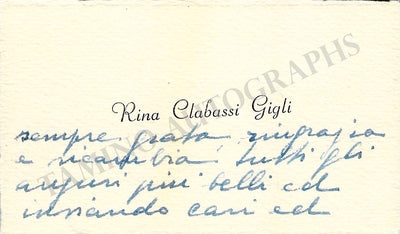 Rina Clabassi Gigli
sempre grata, ringrazia
e ricambia tutti gli
auguri più belli ed
inviando cari ed
TAMINO AUTOGRAPHS